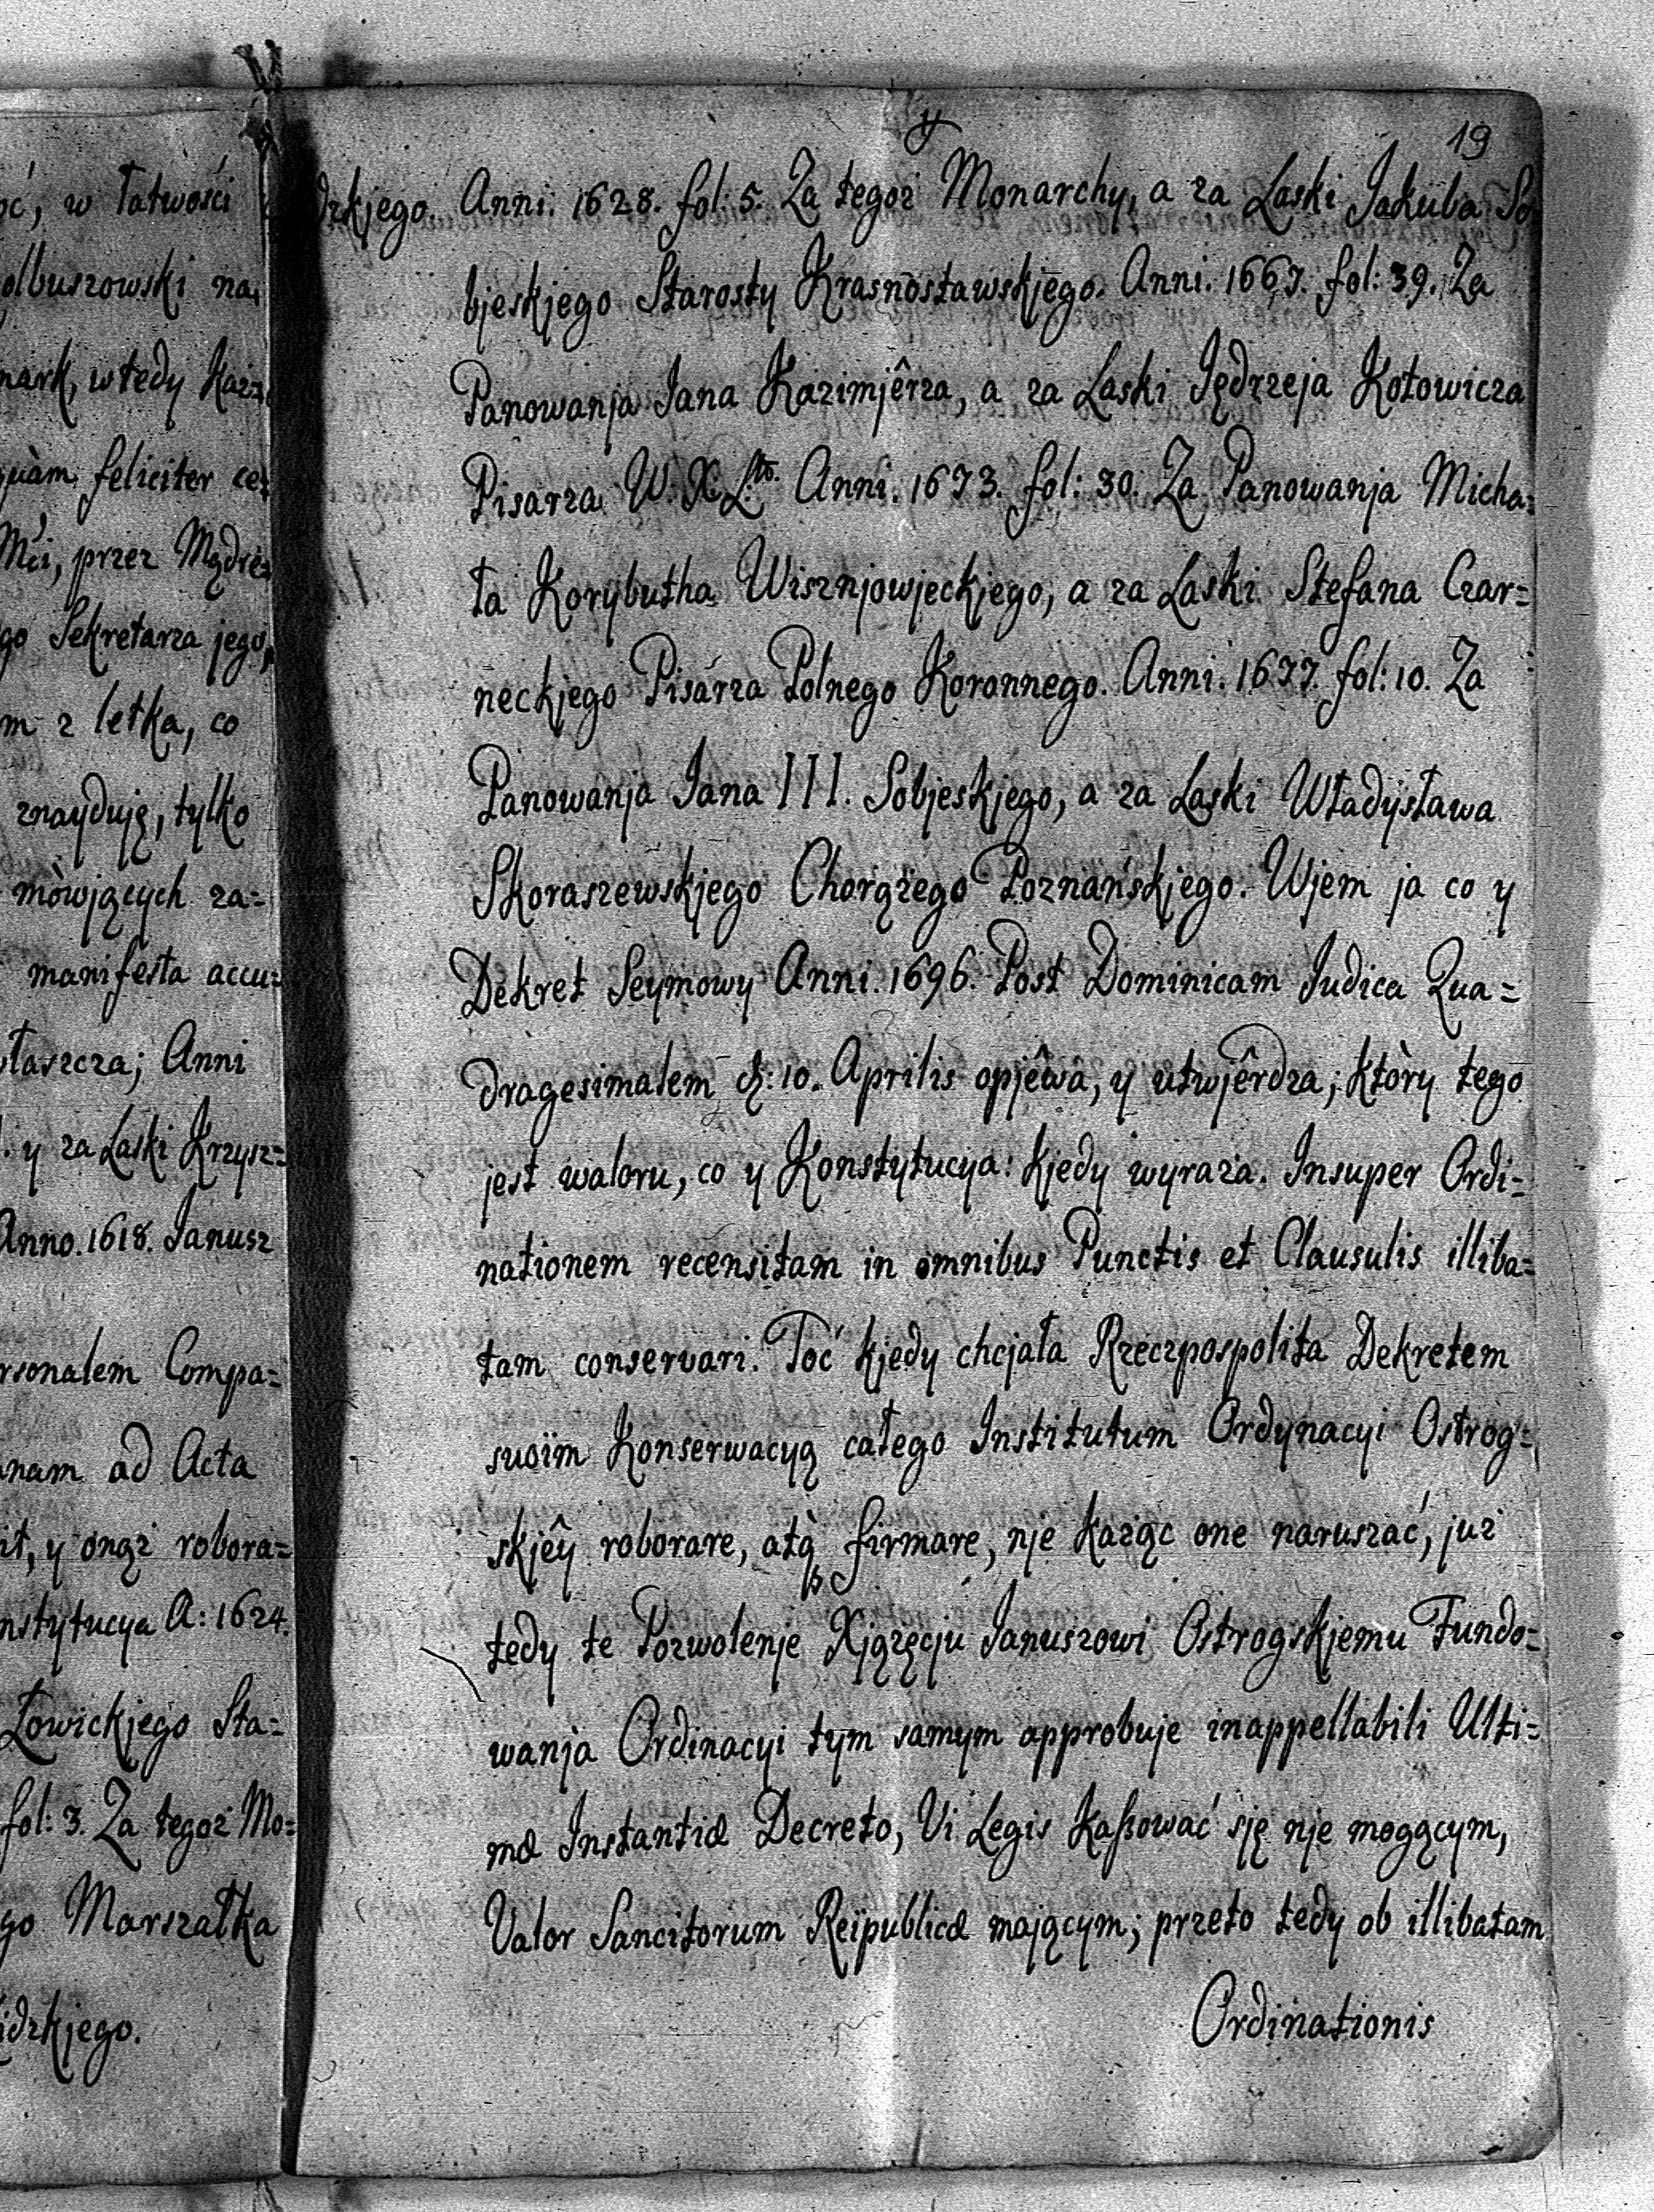 ść, w łatwości
olbuszowski na,
mark, wtedy Każ=
quàm feliciter ce=
Mći, przez Mądré=
go Sekretarza jego,
m z letka, co
znayduję, tylko
mòwjących za=
manifesta accu=
właszcza; Anni
. y za Laski Krzysz=
Anno. 1618. Janusz
rsonalem Compa=
anam ad Acta
it, y onąż robora=
nstytucya A: 1624.
Łowickjego Sta=
fol: 3. Za tegoż Mo=
go Marszałka
idzkjego.
y
19
dzkjego. Anni. 1628. fol: 5. Za tegoż Monarchy, a za Laski Jakuba So
bjeskjego Starosty Krasnostawskjego. Anni. 1667. fol: 39. Za
Panowanja Jana Kazimjêrza, a za Laski Jędrzeja Kotowicza
Pisarza W. X. L.to Anni. 1673. fol: 30. Za Panowanja Micha=
ła Korybutha Wisznjowjeckjego, a za Laski Stefana Czar=
neckjego Pisárza Polnego Koronnego. Anni. 1677. fol: 10. Za
Panowanja Jana III. Sobjeskjego, a za Laski Władysława
Skoraszewskjego Chorążego Poznańskjego. Wjem ja co y
Dekret Seymowy Anni. 1696. Post Dominicam Judica Qua=
dragesimalem d: 10. Aprilis opjêwa, y utwjêrdza; ktòry tego
jest waloru, co y Konstytucya: kjedy wyraża. Insuper Ordi=
nationem recensitam in omnibus Punctis et Clausulis illiba=
tam conservari. Toć kjedy chcjała Rzeczpospolita Dekretem
swoïm Konserwacyą całego Institutum Ordynacyi Ostrog=
skjêy roborare, atq̀ firmare, nje każąc one naruszać, już
tedy te Pozwolenje Xjążęcju Januszowi Ostrogskjemu Fundo=
wanja Ordinacyi tym samym approbuje inappellabili Ulti=
mæ Instantiæ Decreto, Vi Legis Kaßować sję nje mogącym,
Valor Sancitorum Reïpublicæ mającym; przeto tedy ob illibatam
Ordinationis